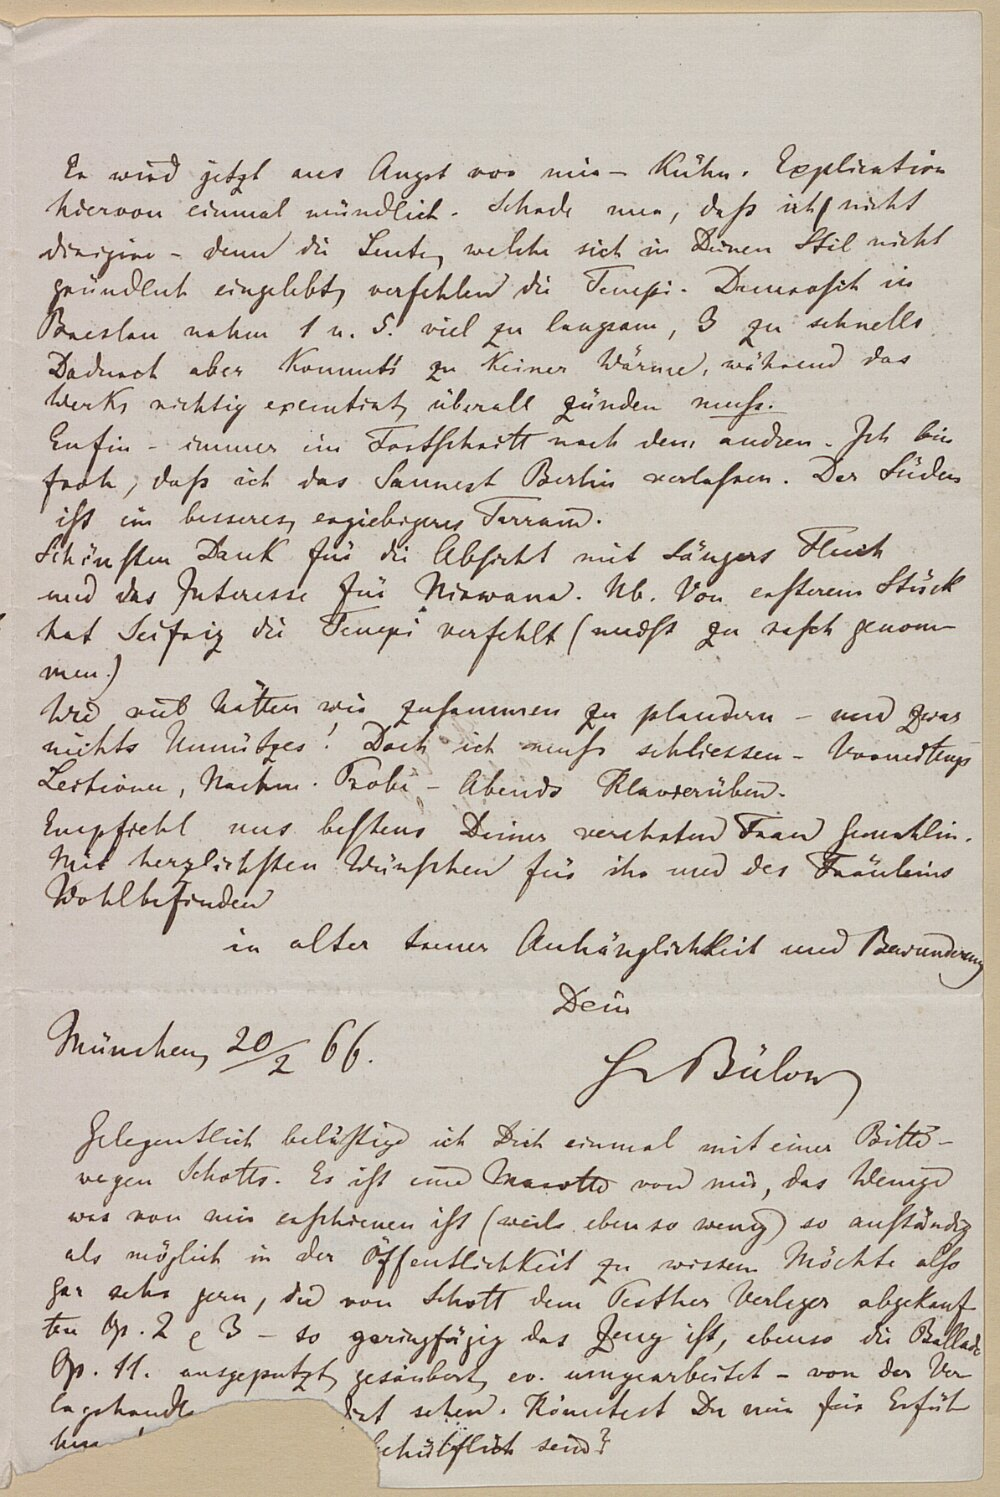 Er wird jetzt aus Angst vor mir – kühn. Explication
hiervon einmal mündlich. Schade nur, daß ich nicht
dirigire – denn die Leute, welche sich in Deinen Stil nicht
gründlich eingelebt, verfehlen die Tempi. Damrosch in
Breslau nahm 1 u. 5. viel zu langsam, 3 zu schnell.
Dadurch aber kommt's zu keiner Wärme, während das
Werk, richtig executirt, überall zünden muß.
Enfin – immer im Fortschritt nach dem andren. Ich bin
froh, daß ich das Saunest Berlin verlassen. Der Süden
ist ein besseres, ergiebigeres Terrain.
Schönsten Dank für die Absicht mit Sängers Fluch
und das Interesse für Nirwana. Nb. Von ersterem Stück
hat Seifriz die Tempi verfehlt (meist zu rasch genom-
men.)
Wie viel hätten wir zusammen zu plaudern – und zwar
nichts Unnützes! Doch ich muß schliessen – Vormittags
Lectionen, Nachm. Probe – Abends Klavierüben.
Empfiehl uns bestens Deiner verehrten Frau Gemahlin.
Mit herzlichsten Wünschen für ihr und des Fräuleins
Wohlbefinden
in alter treuer Anhänglichkeit und Bewunderung
Dein
München, 20/2 66.
Hv Bülow
Gelegentlich belästige ich Dich einmal mit einer Bitte –
wegen Schotts. Es ist eine Marotte von mir, das Wenige
was von mir erschienen ist (weils eben so wenig) so anständig
als möglich in der Öffentlichkeit zu wissen. Möchte also
gar sehr gern, die von Schott dem Pesther Verleger abgekauf-
ten Op. 2 & 3 – so geringfügig das Zeug ist, ebenso die Ballade
Op. 11. ausgeputzt, gesäubert, ev. umgearbeitet – von der Ver-
lagshandl sehen. Könntest Du mir für Erfül-
behülflich sein?